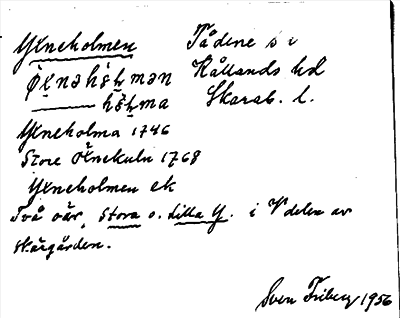 Ykneholmen
Tådene s:n
Kållands hd
Skarab. l.
hɷ̈l̥ma
Ykneholma 1746
Store Öknekuln 1768
Ykneholmen ek
Två öar, Stora o. Lilla Y. i V delen av
skärgården.
Sven Friberg 1956